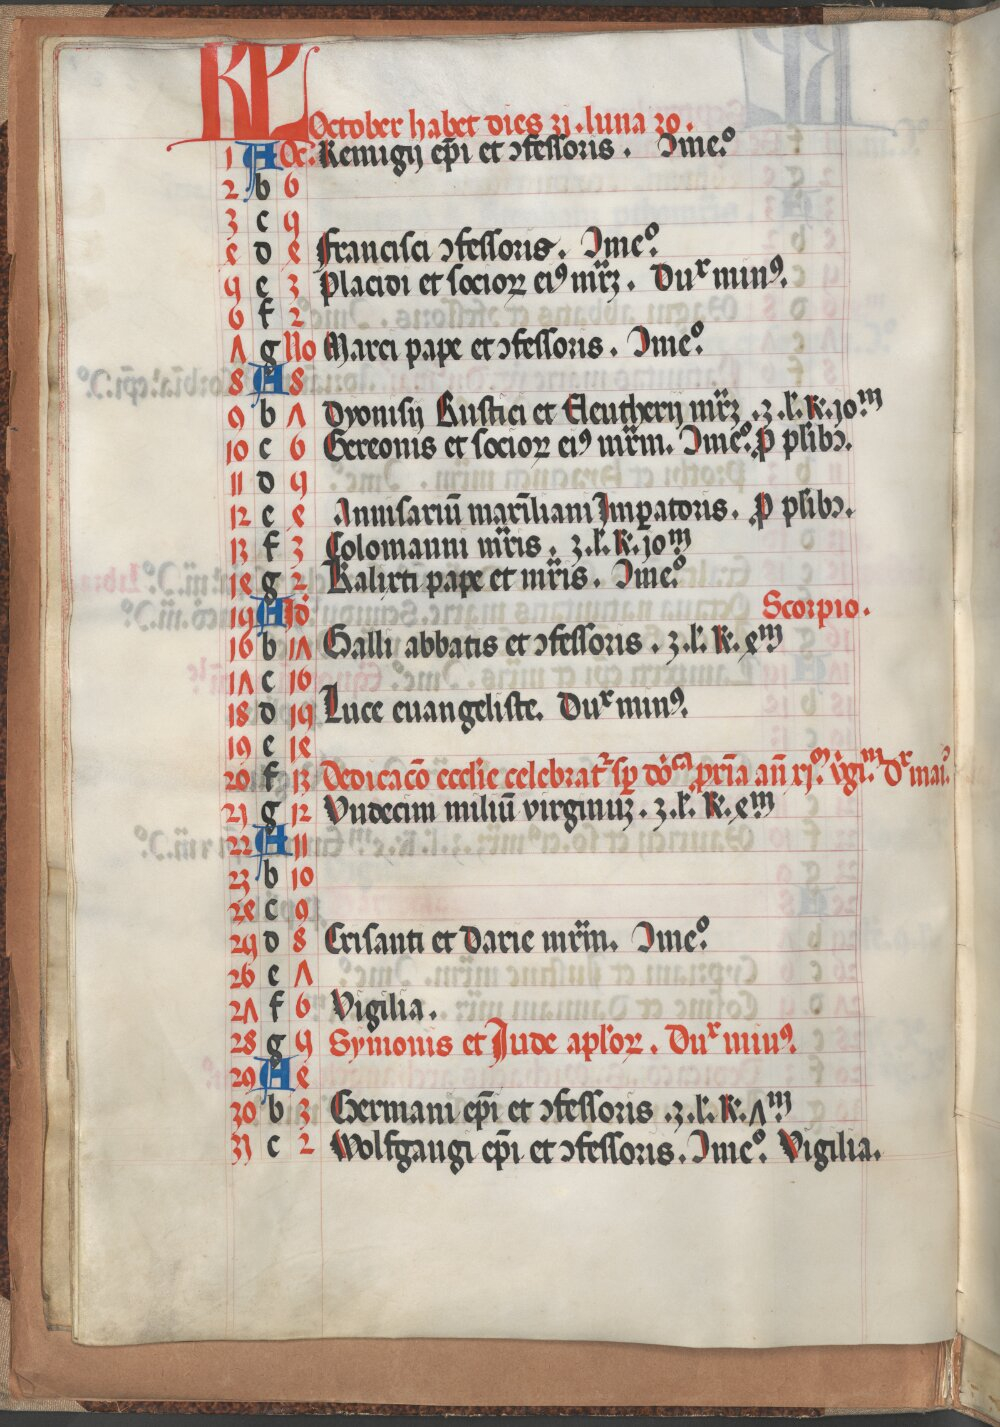 KL
October habet dies 31 . luna 30 .
1 A Oc. Remigij ep̄i et ɔfessoris . Ɔmeº.
2 b 6
3 c 5
4 d 4 Francisci ɔfessoris . Ɔmeº.
5 e 3 Placidi et socioꝝ eiꝰ mr̄ꝫ . Duˣ minꝰ.
6 f 2
7 g No Marci pape et ɔfessoris . Ɔmeº.
8 A 8
9 b 7 Dyonisij Rustici et Eleutherij mr̄ꝫ . 3 . l̄. K. 10ᵐ
10 c 6 Gereonis et socioꝝ eiꝰ mr̄m. Ɔmeº. ꝓ pl̄ibꝫ.
11 d 5
12 e 4 Anniſariū maxīliani Imꝑatoris . ꝓ pl̄ibꝫ.
13 f 3 Colomanni mr̄is . 3 . l̄. K. 10ᵐ
14 g 2 Kalixti pape et mr̄is . Ɔmeº.
15 A Id Scorpio .
16 b 17 Galli abbatis et ɔfessoris . 3 . l̄. K. xᵐ
17 c 16
18 d 15 Luce euangeliste. Duˣ minꝰ.
19 e 14
20 f 13 Dedicacō ecclīe celebrat̄ sꝑ dōᶜᵃ ꝓxīa an̄ xjᵐ v̄giᵐ Dˣ maiꝰ.
21 g 12 Vndecim miliū virginuꝫ . 3 . l̄. K. xᵐ
22 A 11
23 b 10
24 c 9
25 d 8 Crisanti et Darie mr̄m. Ɔmeº.
26 e 7
27 f 6 Vigilia .
28 g 5 Symonis et Jude apl̄oꝝ . Duˣ minꝰ.
29 A 4
30 b 3 Germani ep̄i et ɔfessoris . 3 . l̄. K. 7ᵐ
31 c 2 Wolfgangi ep̄i et ɔfessoris . Ɔmeº. Vigilia.